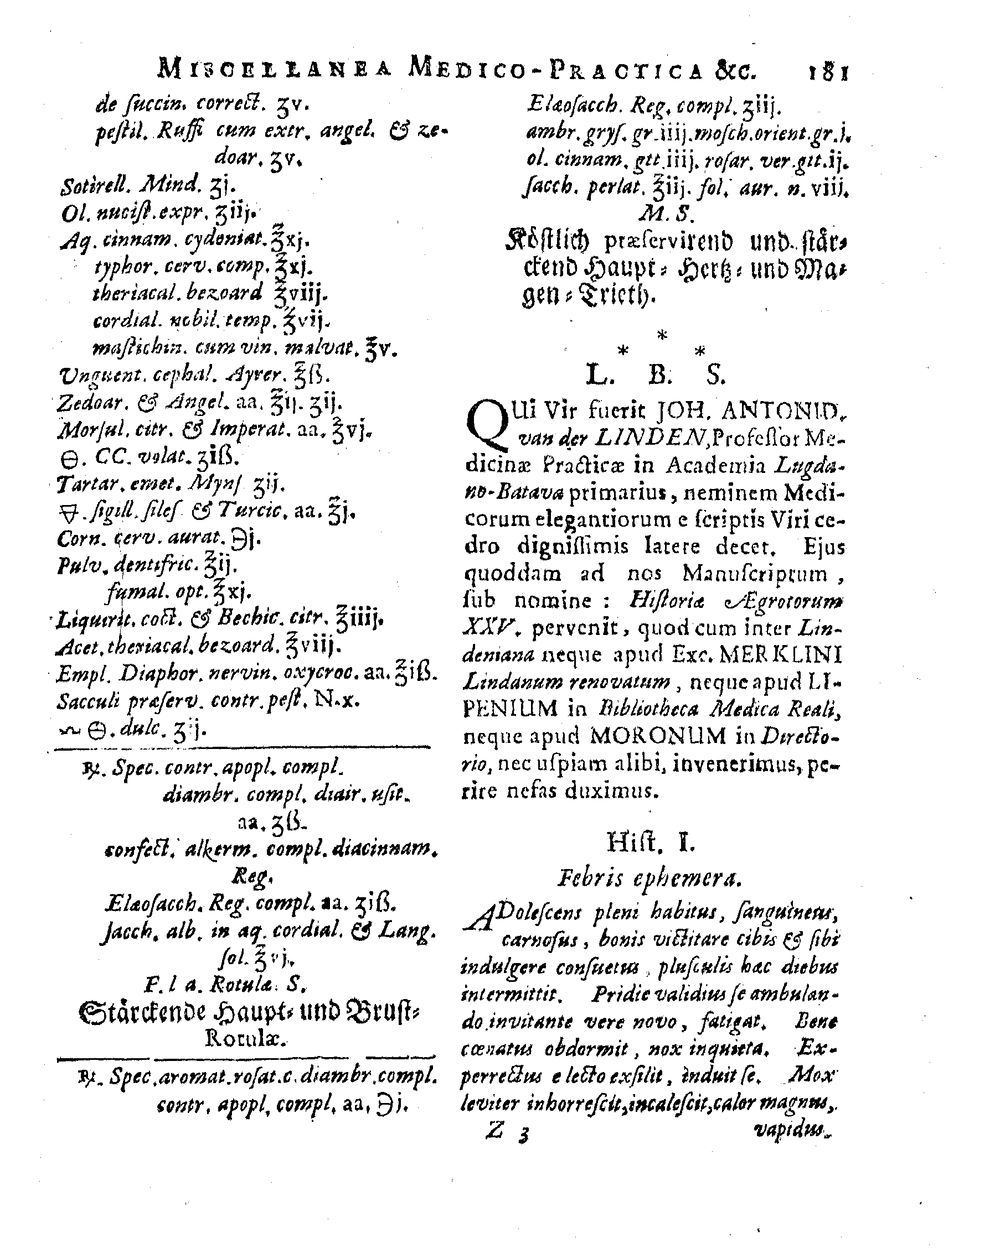 MISCELLANEA MEDICO-PRACTICA &c. 181
de ſuccin. correct. ʒv.
peſtil. Ruffi cum extr. angel. & ze-
doar. ʒv.
Sotirell. Mind. ʒj.
Ol. nuciſt. expr. ʒiij.
Aq. cinnam. cydoniat. ℥xj.
typhor. cerv. comp. ℥xj.
theriacal. bezoard ℥viij.
cordial. nobil. temp. ℥vij.
maſtichin. cum vin. malvat. ℥v.
Unguent. cephal. Ayrer. ℥ß.
Zedoar. & Angel. aa. ℥ij. ʒij.
Morſul. citr. & Imperat. aa. ℥vj.
⊖. CC. volat. ʒiß.
Tartar. emet. Mynſ ʒij.
🜃. ſigill. ſileſ & Turcic. aa. ℥j.
Corn. cerv. aurat. ℈j.
Pulv. dentifric. ℥ij.
fumal. opt. ℥xj.
Liquirit. coct. & Bechic. citr. ℥iiij.
Acet. theriacal. bezoard. ℥viij.
Empl. Diaphor. nervin. oxycroc. aa. ℥iß.
Sacculi præſerv. contr. peſt. N.x.
⊖. dulc.
℞. Spec. contr. apopl. compl.
diambr. compl. diair. uſit.
aa. ʒß.
confect. alkerm. compl. diacinnam.
Reg.
Elæoſacch. Reg. compl. aa. ʒiß.
ſacch. alb. in aq. cordial. & Lang.
ſol. ℥vj.
F. l a. Rotulæ. S.
Stärckende Haupt- und Bruſt-
Rotulæ.
℞. Spec. aromat. roſat. c. diambr. compl.
contr. apopl. compl. aa. ℈j.
Elæoſacch. Reg. compl. ʒiij.
ambr. gryſ. gr. iiij. moſch. orient. gr. j.
ol. cinnam. gtt iiij. roſar. ver. gtt. ij.
ſacch. perlat. ℥iij. fol. aur. n. viij.
M. S.
Köſtlich præſervirend und ſtär-
ckend Haupt- Hertz- und Ma-
gen-Trieth.
*
* *
L. B. S.
QUi Vir fuerit JOH. ANTONID.
van der LINDEN, Profeſſor Me-
dicinæ Practicæ in Academia Lugda-
no-Batava primarius, neminem Medi-
corum elegantiorum e ſcriptis Viri ce-
dro digniſſimis latere decet. Ejus
quoddam ad nos Manuſcriptum,
ſub nomine : Hiſtoriæ Ægrotorum
XXV. pervenit, quod cum inter Lin-
deniana neque apud Exc. MERKLINI
Lindanum renovatum, neque apud LI-
PENIUM in Bibliotheca Medica Reali,
neque apud MORONUM in Directo-
rio, nec uſpiam alibi, invenerimus, pe-
rire nefas duximus.
Hiſt. I.
Febris ephemera.
ADoleſcens pleni habitus, ſanguineus,
carnoſus, bonis victitare cibis & ſibi
indulgere conſuetus, pluſculis hac diebus
intermittit. Pridie validius ſe ambulan-
do invitante vere novo, fatigat. Bene
cœnatus obdormit, nox inquieta. Ex-
perrectus e lecto exſilit, induit ſe. Mox
leviter inhorreſcit, incaleſcit, calor magnus,
Z 3 vapidus.